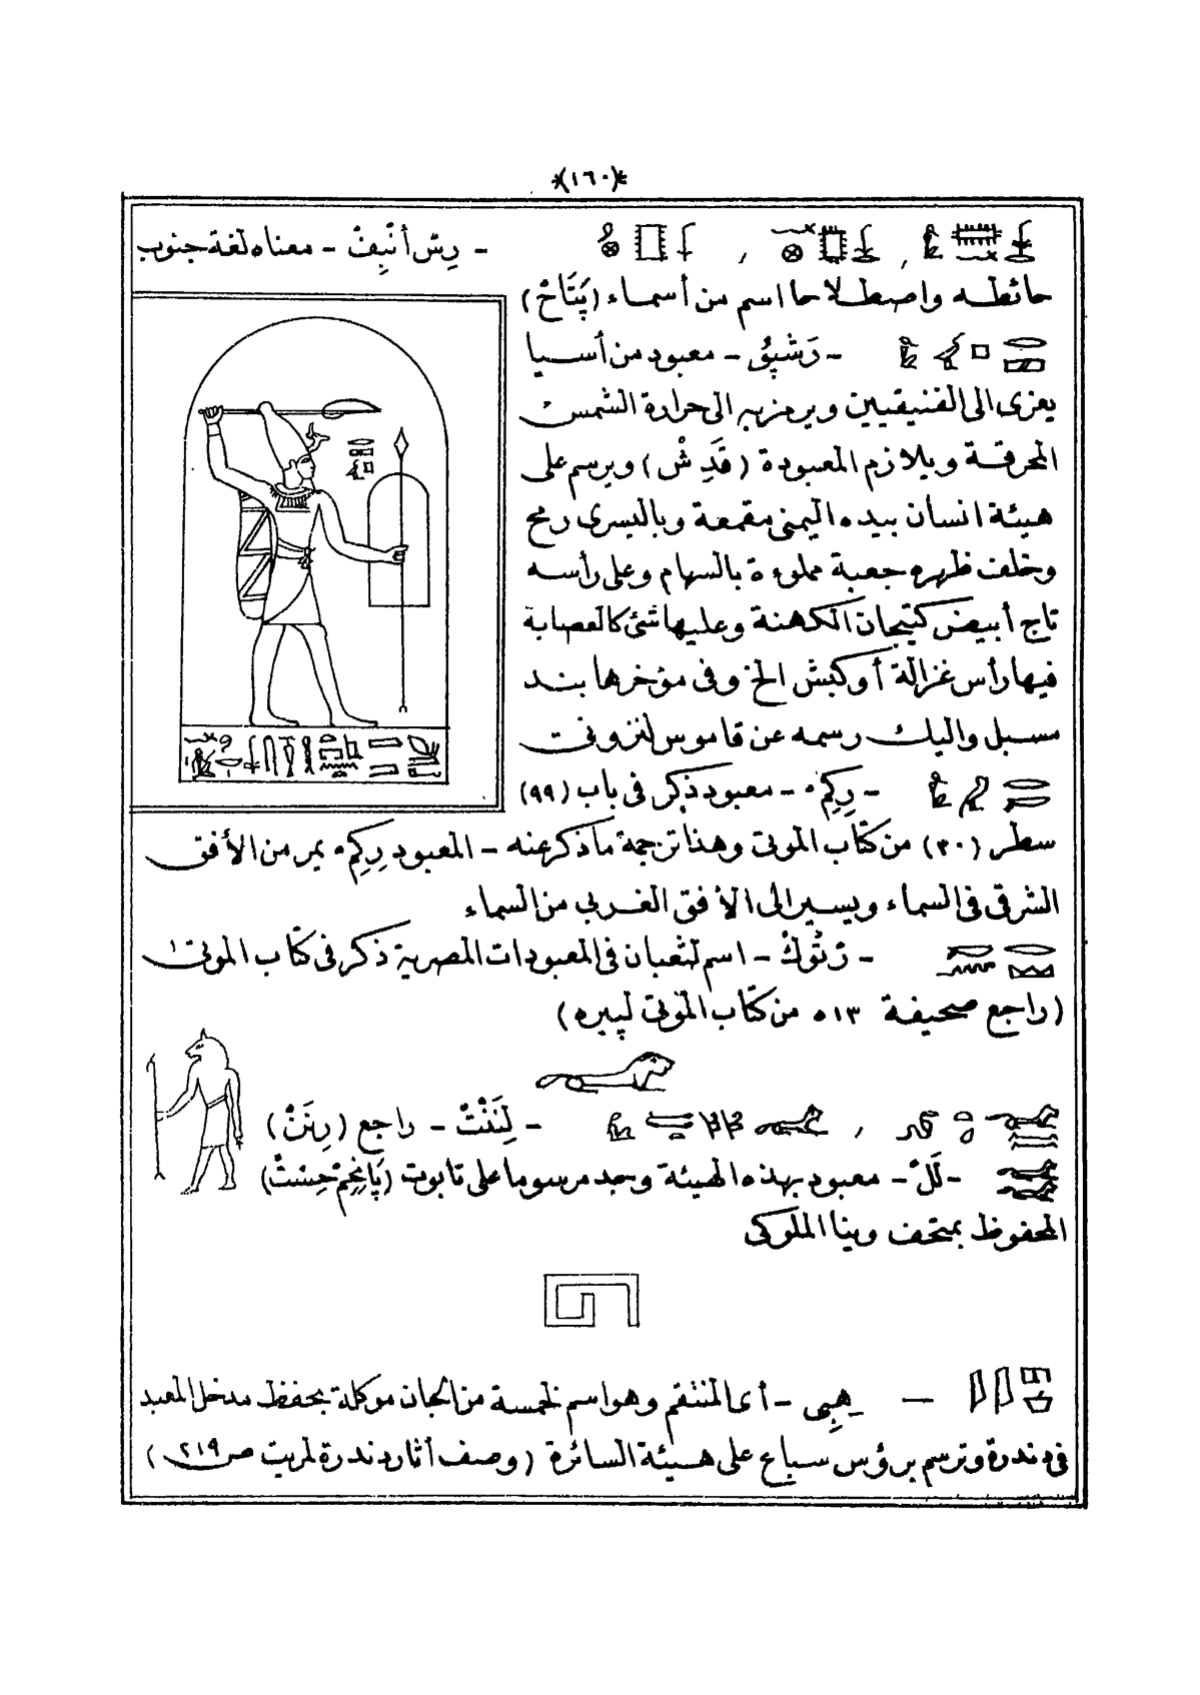 *(١٦٠)*
- رِسْ أَنْبِفْ - معناه لغة جنوب
حائطه واصطلاحا اسم من أسماء (پَتَاحْ)
- رَشْپُو - معبود من أسيا
يعزى الى الفنيقيين ويرمز به الى حرارة الشمس
المحرقة ويلازم المعبودة (قَدِشْ) ويرسم على
هيئة انسان بيده اليمنى مقمعة وباليسرى رمح
وخلف ظهره جعبة مملوءة بالسهام وعلى رأسه
تاج أبيض كتيجان الكهنة وعليها شئ كالعصابة
فيها رأس غزالة أو كبش الخ وفى مؤخرها بند
مسبل واليك رسمه عن قاموس لنزونى
- رِكِمْ - معبود ذكر فى باب (٩٩)
سطر (٣٠) من كتاب الموتى وهذا ترجمة ما ذكر عنه - المعبود رِكِمْ يمر من الأفق
الشرقى فى السماء ويسير الى الأفق الغربى من السماء
- رَنُوكْ - اسم لثعبان فى المعبودات المصرية ذكر فى كتاب الموتى
(راجع صحيفة ٥١٣ من كتاب الموتى لپيره)
- لِنَنْتْ - راجع (رِنَنْ)
- لَلْ - معبود بهذه الهيئة وجد مرسوما على تابوت
المحفوظ بمتحف وينا الملوكى
— هِبِى - أى المنتقم وهو اسم لخمسة من الجان موكلة بحفظ مدخل المعبد
فى دندرة وترسم برؤس سباع على هيئة السائرة (وصف أثار دندرة لمريت ص ٢١٩)